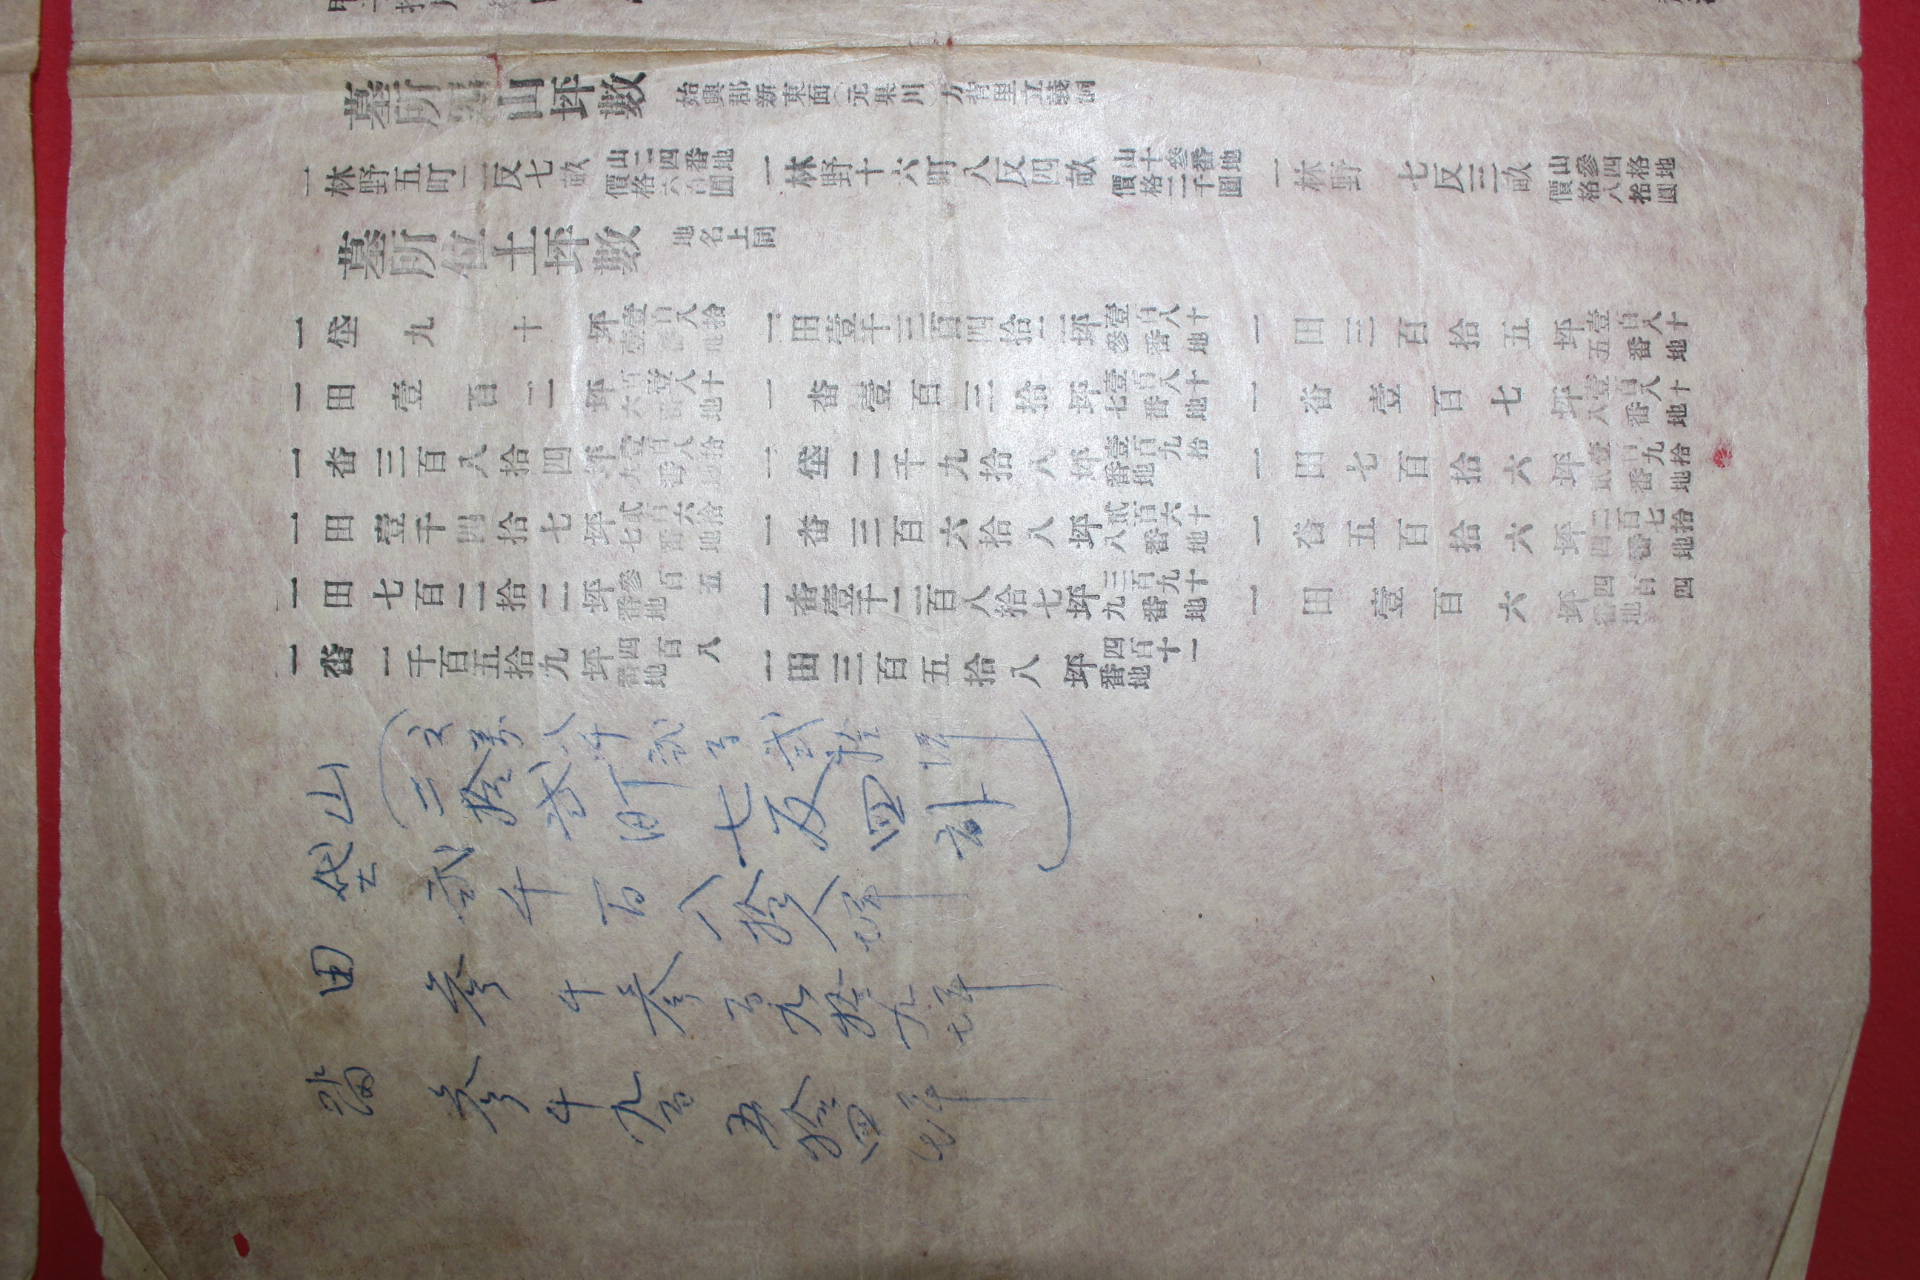 墓所 山坪數 始興郡新東面(元果川)方背里立義洞
一林野五町二反七畝 山二四番地 價格六百圓 一林野十六町八反四畝 山十參番地 價格二千圓 一林野 七反三畝 山參四格地 價格八拾圓
墓所位土坪數 地名上同
一垈九十坪 壹百八拾壹番地 一田壹千三百四拾二坪 壹百八十參番地 一田三百拾五坪 壹百八十五番地
一田壹百二坪 百壹八十六番地 一畓壹百三拾坪 壹百八十七番地 一畓壹百七坪 壹百八十八番地
一畓三百八拾四坪 壹百八拾九番地 一垈二千九拾八坪 壹百九拾番地 一田七百拾六坪 壹百九拾貳番地
一田壹千四拾七坪 貳百六拾七番地 一畓三百六拾八坪 貳百六十八番地 一畓五百拾六坪 二百七拾四番地
一田七百二拾二坪 參百五番地 一畓壹千二百八拾七坪 三百九十九番地 一田壹百六坪 四百四番地
一畓一千百五拾九坪 四百八番地 一田三百五拾八坪 四百十一番地
八千貳百貳拾坪
山 二拾貳町七反四
垈 貳千百八拾八坪
田 參千參百九拾九坪
畓 參千九百五拾四坪